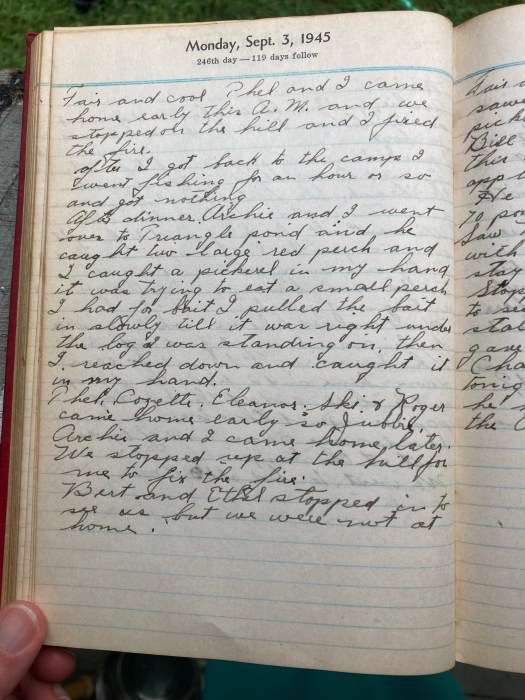 Monday, Sept. 3, 1945
246th day — 119 days follow
Fair and cool Phel and I came
home early this A.M. and we
stopped on the hill and I fixed
the fire.
after I got back to the camp I
went fishing for an hour or so
and got nothing
After dinner Archie and I went
over to Triangle pond and he
caught two large red perch and
I caught a pickerel in my hand
it was trying to eat a small perch
I had for bait I pulled the bait
in slowly till it was right under
the log I was standing on, then
I reached down and caught it
in my hand.
Phel, Cozette, Eleanor, Ski & Roger
came home early so
Archie and I came home later.
We stopped up at the hill for
me to fix the fire.
Bert and Ethel stopped in to
see us but we were not at
home.
Fair
saw
pick
Bill
this
app
He
70 po
Saw
with
stay
Stop
to se
sta
gave
Cha
tonig
he
the